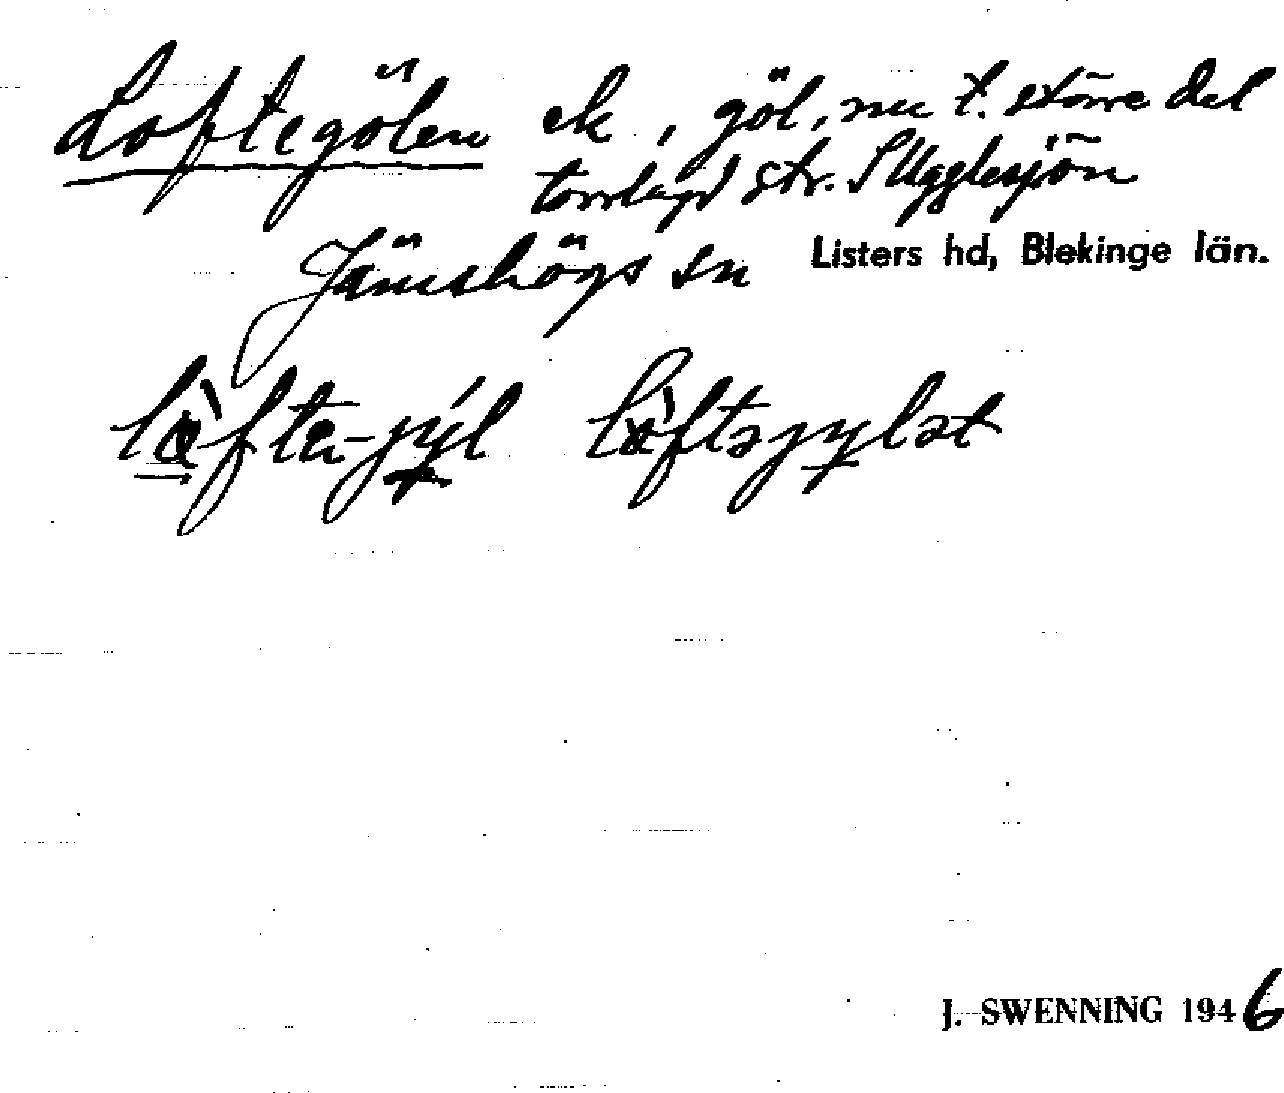 Loftegölen ek, göl, nu t. större del
torrlagd str. S Ugglesjön
Jämshögs sn Listers hd, Blekinge län.
J. SWENNING 1946